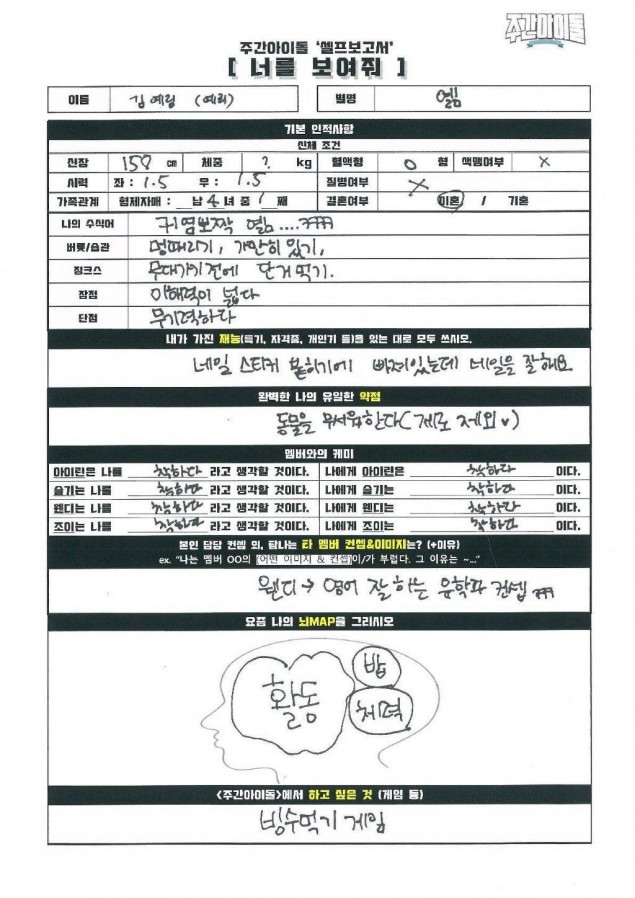 주간아이돌
주간아이돌 '셀프보고서'
[ 너를 보여줘 ]
이름 김예림 (예리) 별명 옐림
기본 인적사항
신체 조건
신장 159 cm 체중 ? kg 혈액형 O 형 색맹여부 X
시력 좌 : 1.5 우 : 1.5 질병여부 X
가족관계 형제자매 : 남 4 녀 중 1 째 결혼여부 미혼 / 기혼
나의 수식어 귀염뽀짝 옐림....ㅋㅋㅋ
버릇/습관 멍때리기, 가만히 있기,
징크스 무대가기 전에 단거 먹기.
장점 이해력이 넓다
단점 무기력하다
내가 가진 재능(특기, 자격증, 개인기 등)을 있는 대로 모두 쓰시오.
네일 스티커 붙히기에 빠져있는데 네일을 잘해요
완벽한 나의 유일한 약점
동물을 무서워한다(계로 제외♥)
멤버와의 케미
아이린은 나를 착하다 라고 생각할 것이다. 나에게 아이린은 착하다 이다.
슬기는 나를 착하다 라고 생각할 것이다. 나에게 슬기는 착하다 이다.
웬디는 나를 착하다 라고 생각할 것이다. 나에게 웬디는 착하다 이다.
조이는 나를 착하다 라고 생각할 것이다. 나에게 조이는 착하다 이다.
본인 담당 컨셉 외, 탐나는 타 멤버 컨셉&이미지는? (+이유)
ex. "나는 멤버 OO의 [어떤 이미지 & 컨셉]이/가 부럽다. 그 이유는 ~..."
웬디 → 영어 잘하는 유학파 컨셉 ㅋㅋㅋ
요즘 나의 뇌MAP을 그리시오
활동
밥
체력
<주간아이돌>에서 하고 싶은 것 (게임 등)
빙수먹기 게임